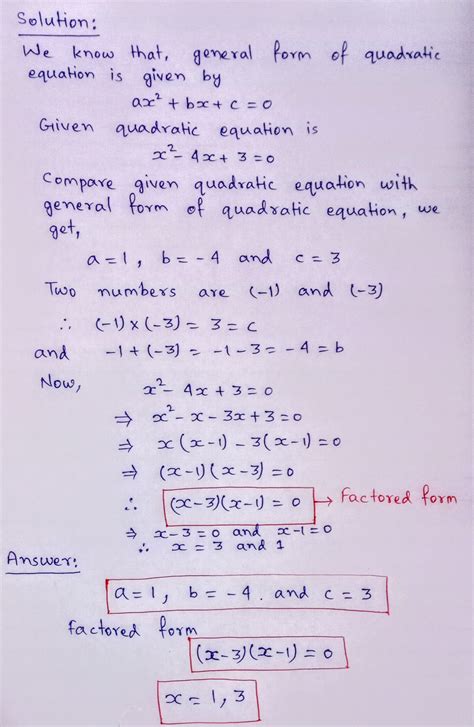 Solution:
We know that, general form of quadratic
equation is given by
ax² + bx + c = 0
Given quadratic equation is
x² - 4x + 3 = 0
Compare given quadratic equation with
general form of quadratic equation, we
get,
a = 1 , b = -4 and c = 3
Two numbers are (-1) and (-3)
∴ (-1) × (-3) = 3 = c
and -1 + (-3) = -1 - 3 = -4 = b
Now, x² - 4x + 3 = 0
⇒ x² - x - 3x + 3 = 0
⇒ x (x-1) - 3(x-1) = 0
⇒ (x-1)(x-3) = 0
∴ (x-3)(x-1) = 0 → Factored form
⇒ x-3=0 and x-1=0
∴ x = 3 and 1
Answer:
a = 1, b = -4. and c = 3
factored form
(x-3)(x-1) = 0
x = 1, 3